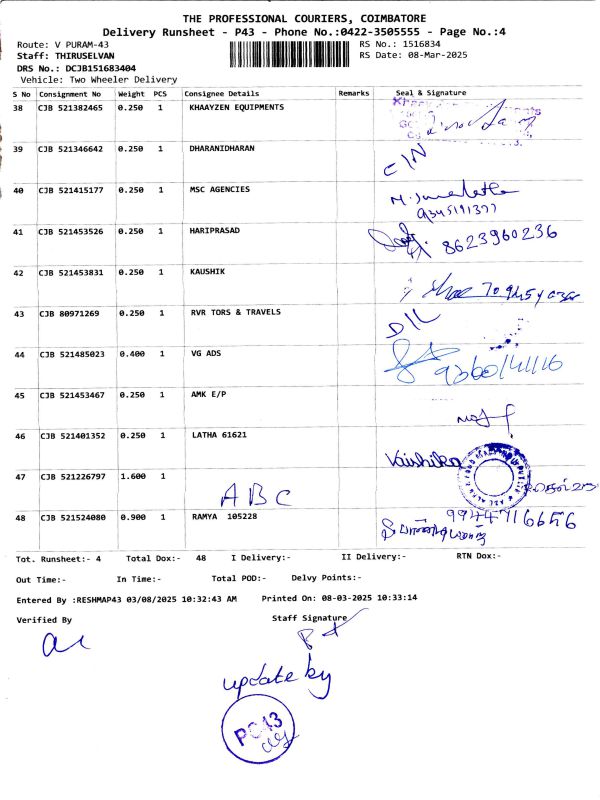 THE PROFESSIONAL COURIERS, COIMBATORE
Delivery Runsheet - P43 - Phone No.:0422-3505555 - Page No.:4
Route: V PURAM-43 RS No.: 1516834
Staff: THIRUSELVAN RS Date: 08-Mar-2025
DRS No.: DCJB151683404
Vehicle: Two Wheeler Delivery
S No Consignment No Weight PCS Consignee Details Remarks Seal & Signature
38 CJB 521382465 0.250 1 KHAAYZEN EQUIPMENTS
39 CJB 521346642 0.250 1 DHARANIDHARAN C/N
40 CJB 521415177 0.250 1 MSC AGENCIES
9345191377
41 CJB 521453526 0.250 1 HARIPRASAD 8623960236
42 CJB 521453831 0.250 1 KAUSHIK
43 CJB 80971269 0.250 1 RVR TORS & TRAVELS D/L
44 CJB 521485023 0.400 1 VG ADS 9360141116
45 CJB 521453467 0.250 1 AMK E/P
46 CJB 521401352 0.250 1 LATHA 61621 Vaishika
47 CJB 521226797 1.600 1 ABC
48 CJB 521524080 0.900 1 RAMYA 105228 9944716656
Tot. Runsheet:- 4 Total Dox:- 48 I Delivery:- II Delivery:- RTN Dox:-
Out Time:- In Time:- Total POD:- Delvy Points:-
Entered By :RESHMAP43 03/08/2025 10:32:43 AM Printed On: 08-03-2025 10:33:14
Verified By Staff Signature
update by
PC43